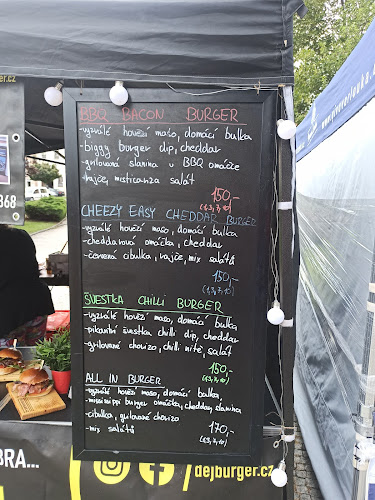 burger.cz
BBQ BACON BURGER
-vyzrálé hovězí maso, domácí bulka
-biggy burger dip, cheddar
-grilovaná slanina v BBQ omáčce
-rajče, misticanza salát
150,-
(1,3,7,10)
CHEEZY EASY CHEDDAR BURGER
-vyzrálé hovězí maso, domácí bulka
-cheddarová omáčka, cheddar
-červená cibulka, rajče, mix salátů
150,-
(1,3,7,10)
ŠVESTKA CHILLI BURGER
-vyzrálé hovězí maso, domácí bulka,
-pikantní švestka chilli dip, cheddar
-grilované chorizo, chilli nitě, salát
150,-
(1,3,7,10)
ALL IN BURGER
-vyzrálé hovězí maso, domácí bulka,
-mississippi burger omáčka, cheddar, slanina
-cibulka, grilované chorizo
-mix salátů
170,-
(1,3,7,10)
368
BRA...
/dejburger.cz